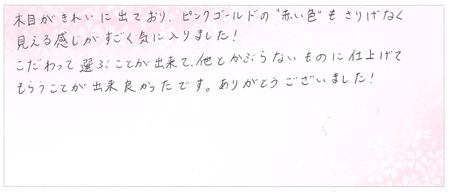 木目がきれいに出ており、ピンクゴールドの"赤い色"もさりげなく
見える感じがすごく気に入りました!
こだわって選ぶことが出来て、他とかぶらないものに仕上げて
もらうことが出来良かったです。ありがとうございました!